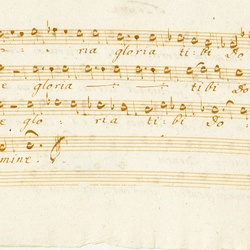 ria gloria tibi do
e gloria tibi do
e glo ria tibi do
mine.